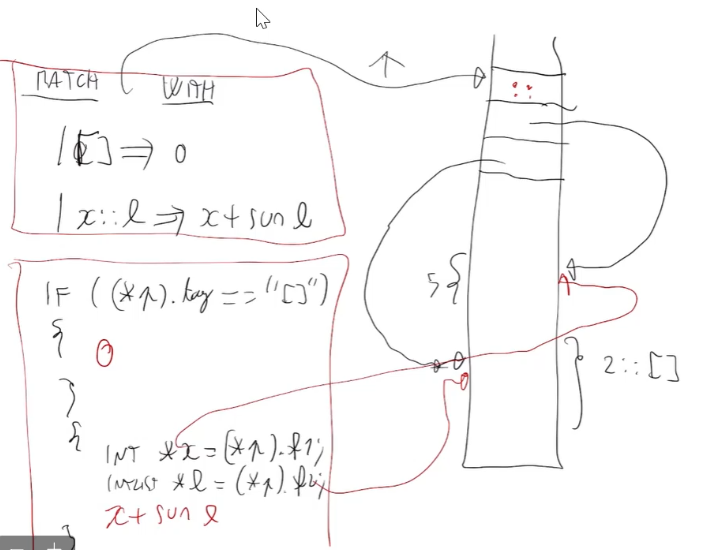 MATCH WITH
| [] ⇒ 0
| x::l ⇒ x + sun l
IF ((*r).tag == "[]")
{
0
}
{
INT *x = (*r).f1;
INTLIST *l = (*r).f2;
x + sun l
}
::
5 {
} 2::[]